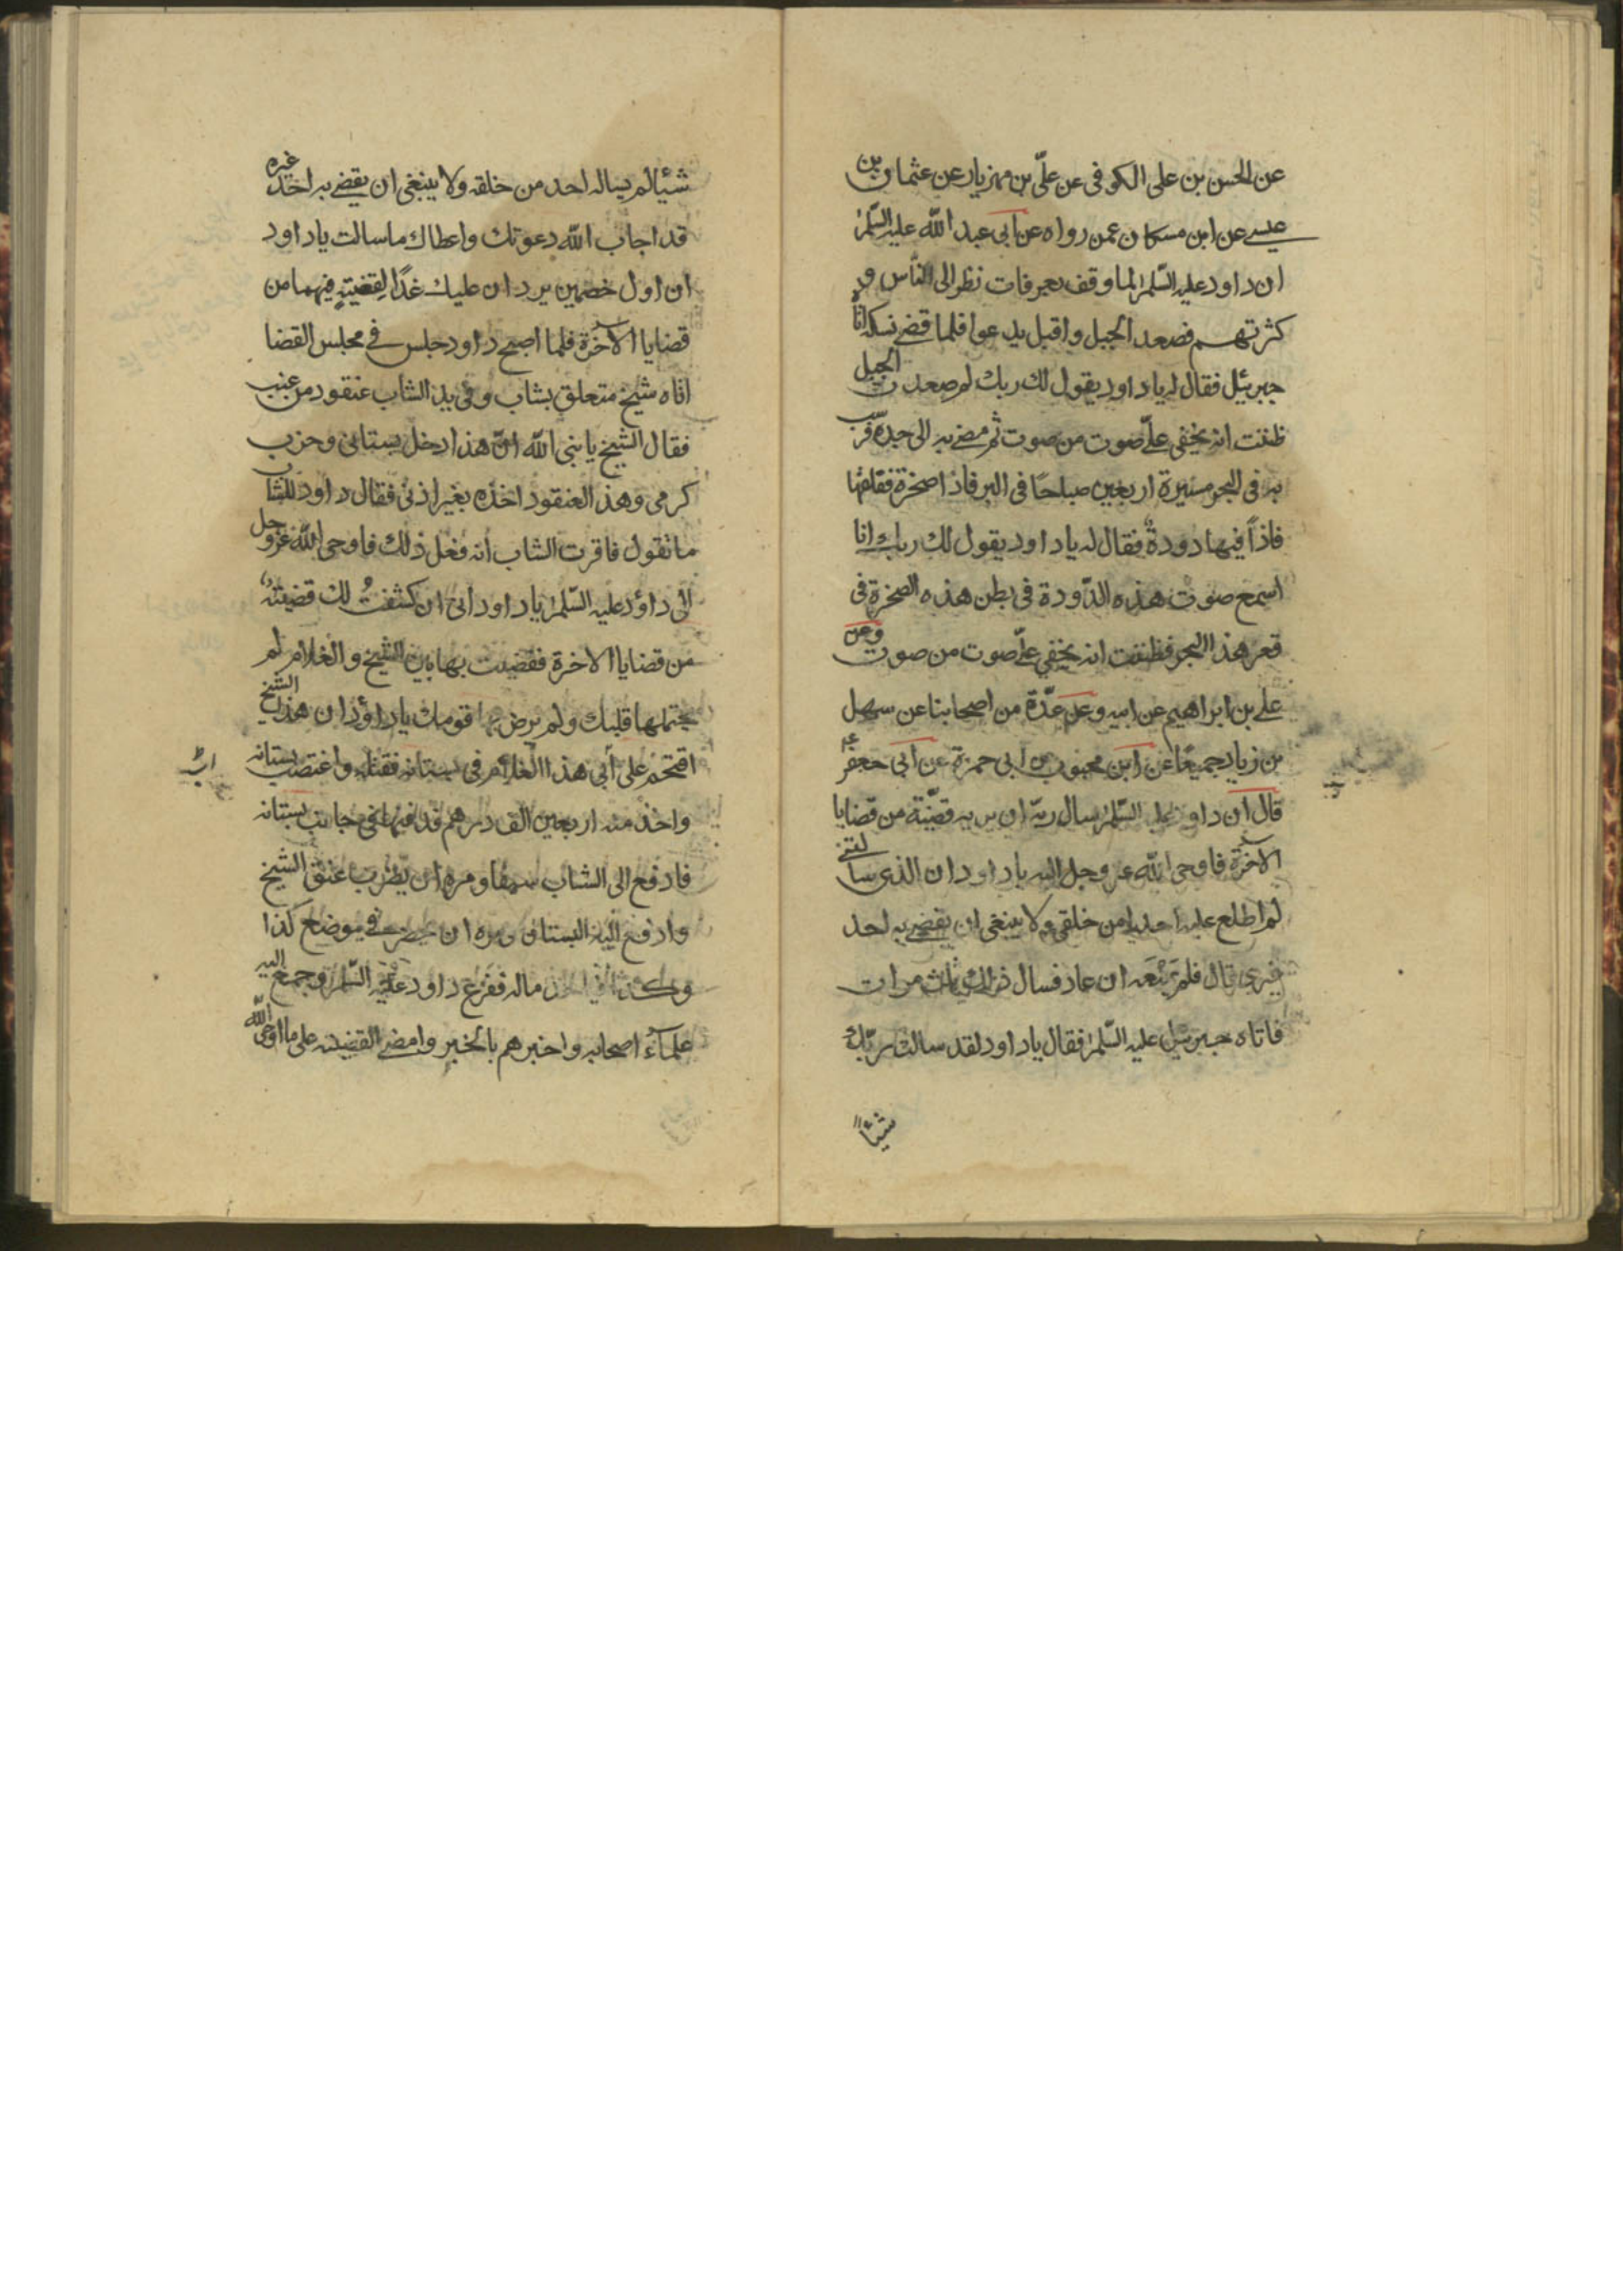 عن الحسن بن على الكوفى عن علّى بن مهزيار عن عثمان بن
عيسے عن ابن مسكان عمن رواه عن ابى عبد الله عليه السّلم
ان داود عليه السّلم لما وقف بعرفات نظر الى النّاس و
كثرتهم فصعد الجبل واقبل يدعوا فلما قضے نسكه اتاه
جبرئيل فقال له ياداود يقول لك ربك لم صعدت الجبل
ظننت انه يخفى علىّ صوت من صوت ثم مضے به الى جدّه فرسب
به فى البحر مسيرة اربعين صباحًا فى البر فاذا صخرة ففلقها
فاذاً فيها دودةٌ فقال له ياداود يقول لك ربك انا
اسمع صوت هذه الدّودة فى بطن هذه الصخرة فى
قعر هذا البحر فظننت انه يخفى علىّ صوت من صوت وعن
على بن ابراهيم عن ابيه وعن عدّة من اصحابنا عن سهل
بن زياد جميعًا عن ابن محبوب عن ابى حمزة عن ابى جعفر
قال ان داود عليه السّلم سال ربّه ان يريه قضيّة من قضايا
الاخرة فاوحى الله عز وجل اليه ياداود ان الذى سالتنے
لم اطلع عليه احدا من خلقى ولا ينبغى ان يقضے به احد
غيرى قال فلم يمنعه ان عاد فسال ذلك ثلث مرات
فاتاه جبرئيل عليه السّلم فقال ياداود لقد سالت ربّك
شيئاً
شيئا لم يساله احد من خلقه ولا ينبغى ان يقضے به احد غيره
قد اجاب الله دعوتك واعطاك ماسالت ياداود
ان اول خصمين يردان عليك غدًا لقضيته فيهما من
قضايا الاخرة فلما اصبح داود جلس فے مجلس القضا
اتاه شيخ متعلق بشاب وفى يد الشاب عنقود من عنب
فقال الشيخ يا نبى الله انّ هذا دخل بستانى وخرب
كرمى وهذ العنقود اخذه بغير اذنى فقال داود للشاب
ماتقول فاقرت الشاب انه فعل ذلك فاوحى الله عز وجل
الى داؤد عليه السّلم ياداود انى ان كشفتُ لك قضيته
من قضايا الاخرة فقضيت بها بين الشيخ والغلام لم
يحتملها قلبك ولم يرض بها قومك ياداؤد ان هذا الشيخ
اقتحم على أبى هذا الغلام فى بستانه فقتله واغتصب بستانه
واخذ منه اربعين الف درهم فدفنها فى جانب بستانه
فادفع الى الشاب سيفا ومره ان يضرب عنق الشيخ
وادفع اليه البستان ومره ان يحفر فے موضع كذا
وكذا ماله ففزع داود عليه السّلم وجمع اليه
علمآء اصحابه واخبرهم بالخبر وامضے القضيته على ما اوحى الله